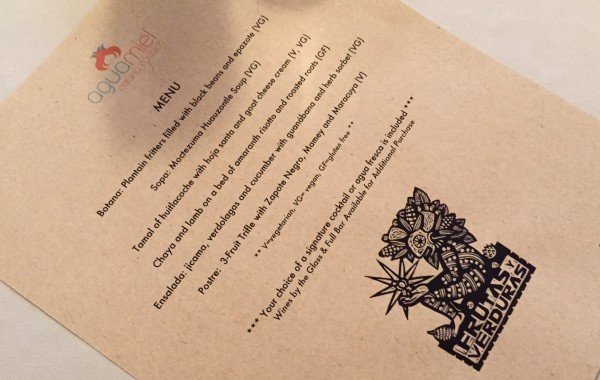 aguamiel
MENU
Botana: Plantain fritters filled with black beans and epazote (VG)
Sopa: Moctezuma Huauzontle Soup (VG)
Tamal of huitlacoche with hoja santa and goat cheese cream (V, VG)
Chaya and lamb on a bed of amaranth risotto and roasted roots (GF)
Ensalada: jicama, verdolagas and cucumber with guanabana and herb sorbet (VG)
Postre: 3-Fruit Trifle with Zapote Negro, Mamey and Maracuya (V)
** V=vegetarian, VG= vegan, GF=gluten free **
*** Your choice of a signature cocktail or agua fresca is included ***
Wines by the Glass & Full Bar Available for Additional Purchase
FRUTAS Y
VERDURAS